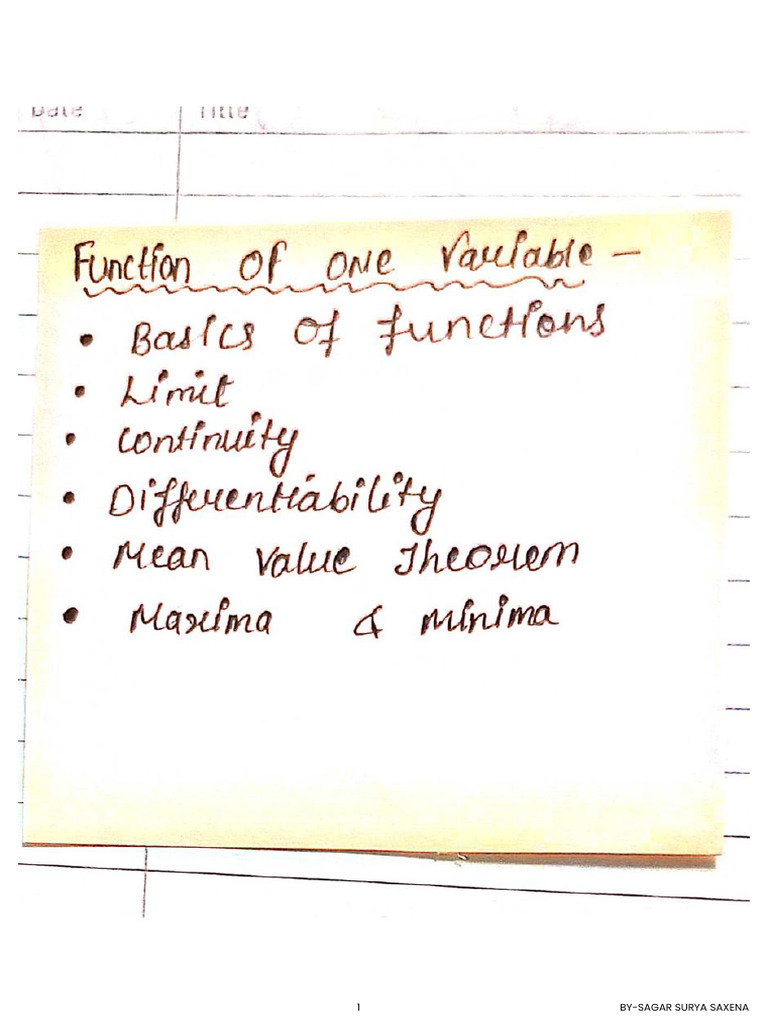 Date Title
Function of one Variable -
• Basics of functions
• Limit
• Continuity
• Differentiability
• Mean Value Theorem
• Maxima & Minima
1 BY-SAGAR SURYA SAXENA